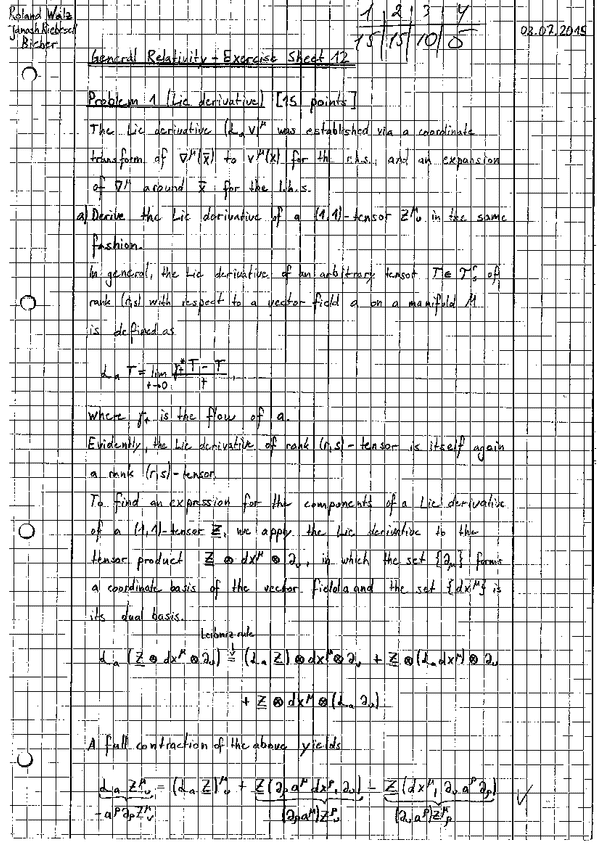 Roland Walz
Janosh Riebesell
Bicher
1 | 2 | 3 | 4
15 | 15 | 10 | 5
03.07.2015
General Relativity – Exercise Sheet 12
Problem 1 (Lie derivative) [15 points]
The Lie derivative (ℒₐ V)^μ was established via a coordinate
transform of V̄^μ(x̄) to V^μ(x) for the r.h.s., and an expansion
of V̄^μ around x̄ for the l.h.s.
a) Derive the Lie derivative of a (1,1)-tensor Z^μ_ν in the same
fashion.
In general, the Lie derivative of an arbitrary tensor T ∈ T^r_s of
rank (r,s) with respect to a vector field a on a manifold M
is defined as
ℒₐ T = lim_{t→0} (γ_t^* T − T)/t,
where γ_t is the flow of a.
Evidently, the Lie derivative of rank (r,s)-tensor is itself again
a rank (r,s)-tensor.
To find an expression for the components of a Lie derivative
of a (1,1)-tensor Z, we apply the Lie derivative to the
tensor product Z ⊗ dx^μ ⊗ ∂_ν, in which the set {∂_μ} forms
a coordinate basis of the vector field a and the set {dx^μ} is
its dual basis.
Leibniz rule
ℒₐ (Z ⊗ dx^μ ⊗ ∂_ν) = (ℒₐ Z) ⊗ dx^μ ⊗ ∂_ν + Z ⊗ (ℒₐ dx^μ) ⊗ ∂_ν
+ Z ⊗ dx^μ ⊗ (ℒₐ ∂_ν)
A full contraction of the above yields
ℒₐ Z^μ_ν = (ℒₐ Z)^μ_ν + Z(∂_ρ a^μ dx^ρ, ∂_ν) − Z(dx^μ, ∂_ν a^ρ ∂_ρ) ✓
−a^ρ ∂_ρ Z^μ_ν (∂_ρ a^μ) Z^ρ_ν (∂_ν a^ρ) Z^μ_ρ